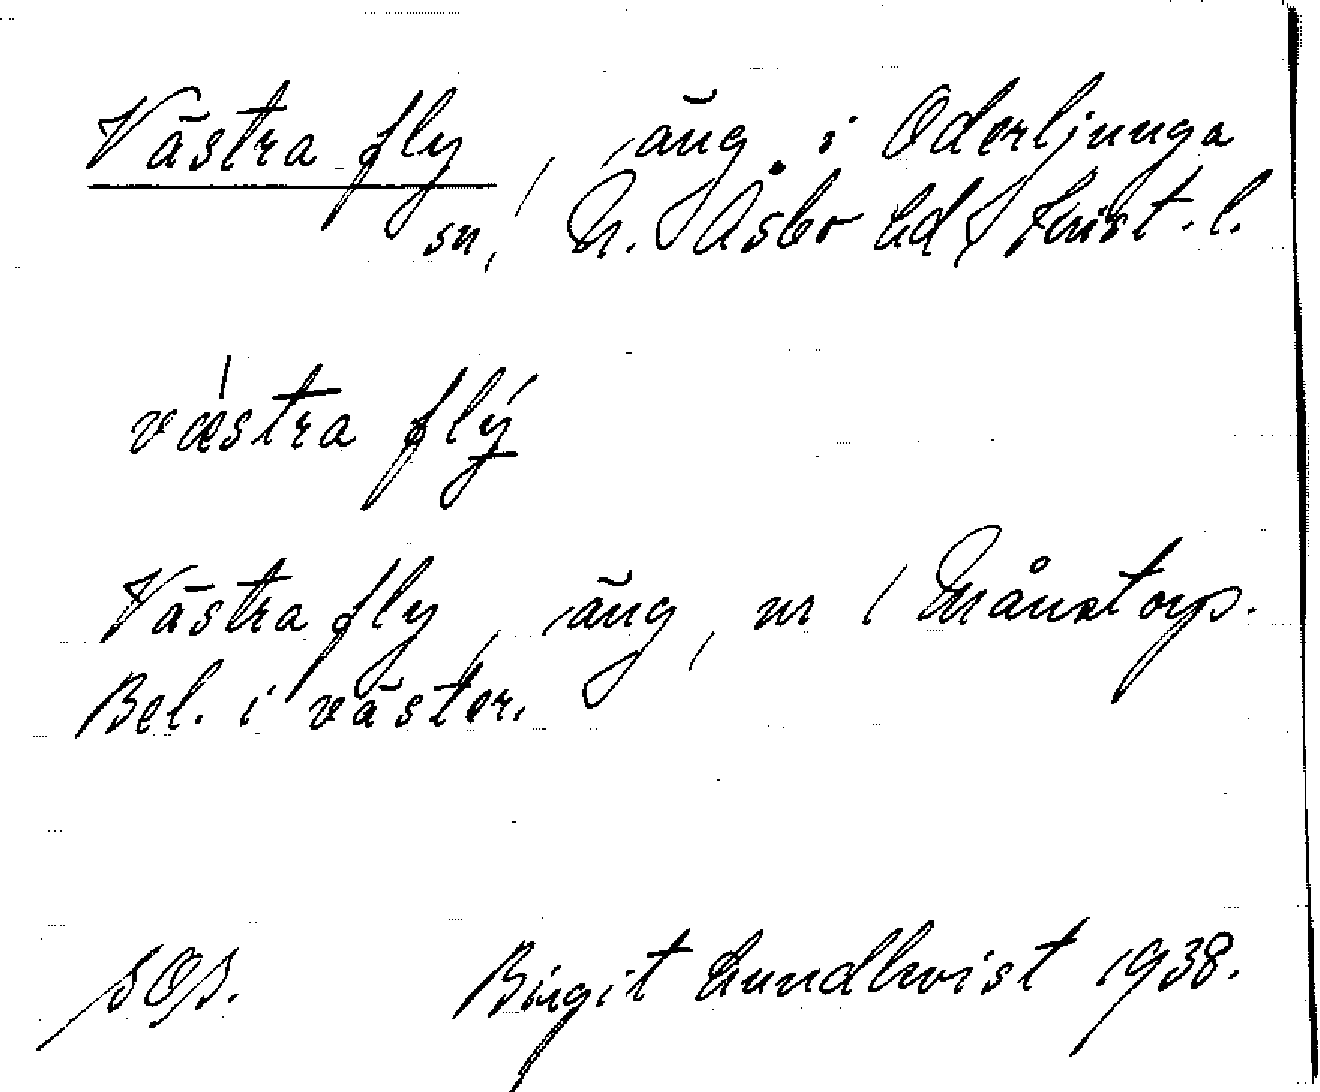 Västra fly, äng i Oderljunga
sn, N. Åsbo hd, Krist. l.
væstra flý
Västra fly, äng, nr 1 Månstorp.
Bel. i väster.
SOS. Birgit Lundkvist 1938.